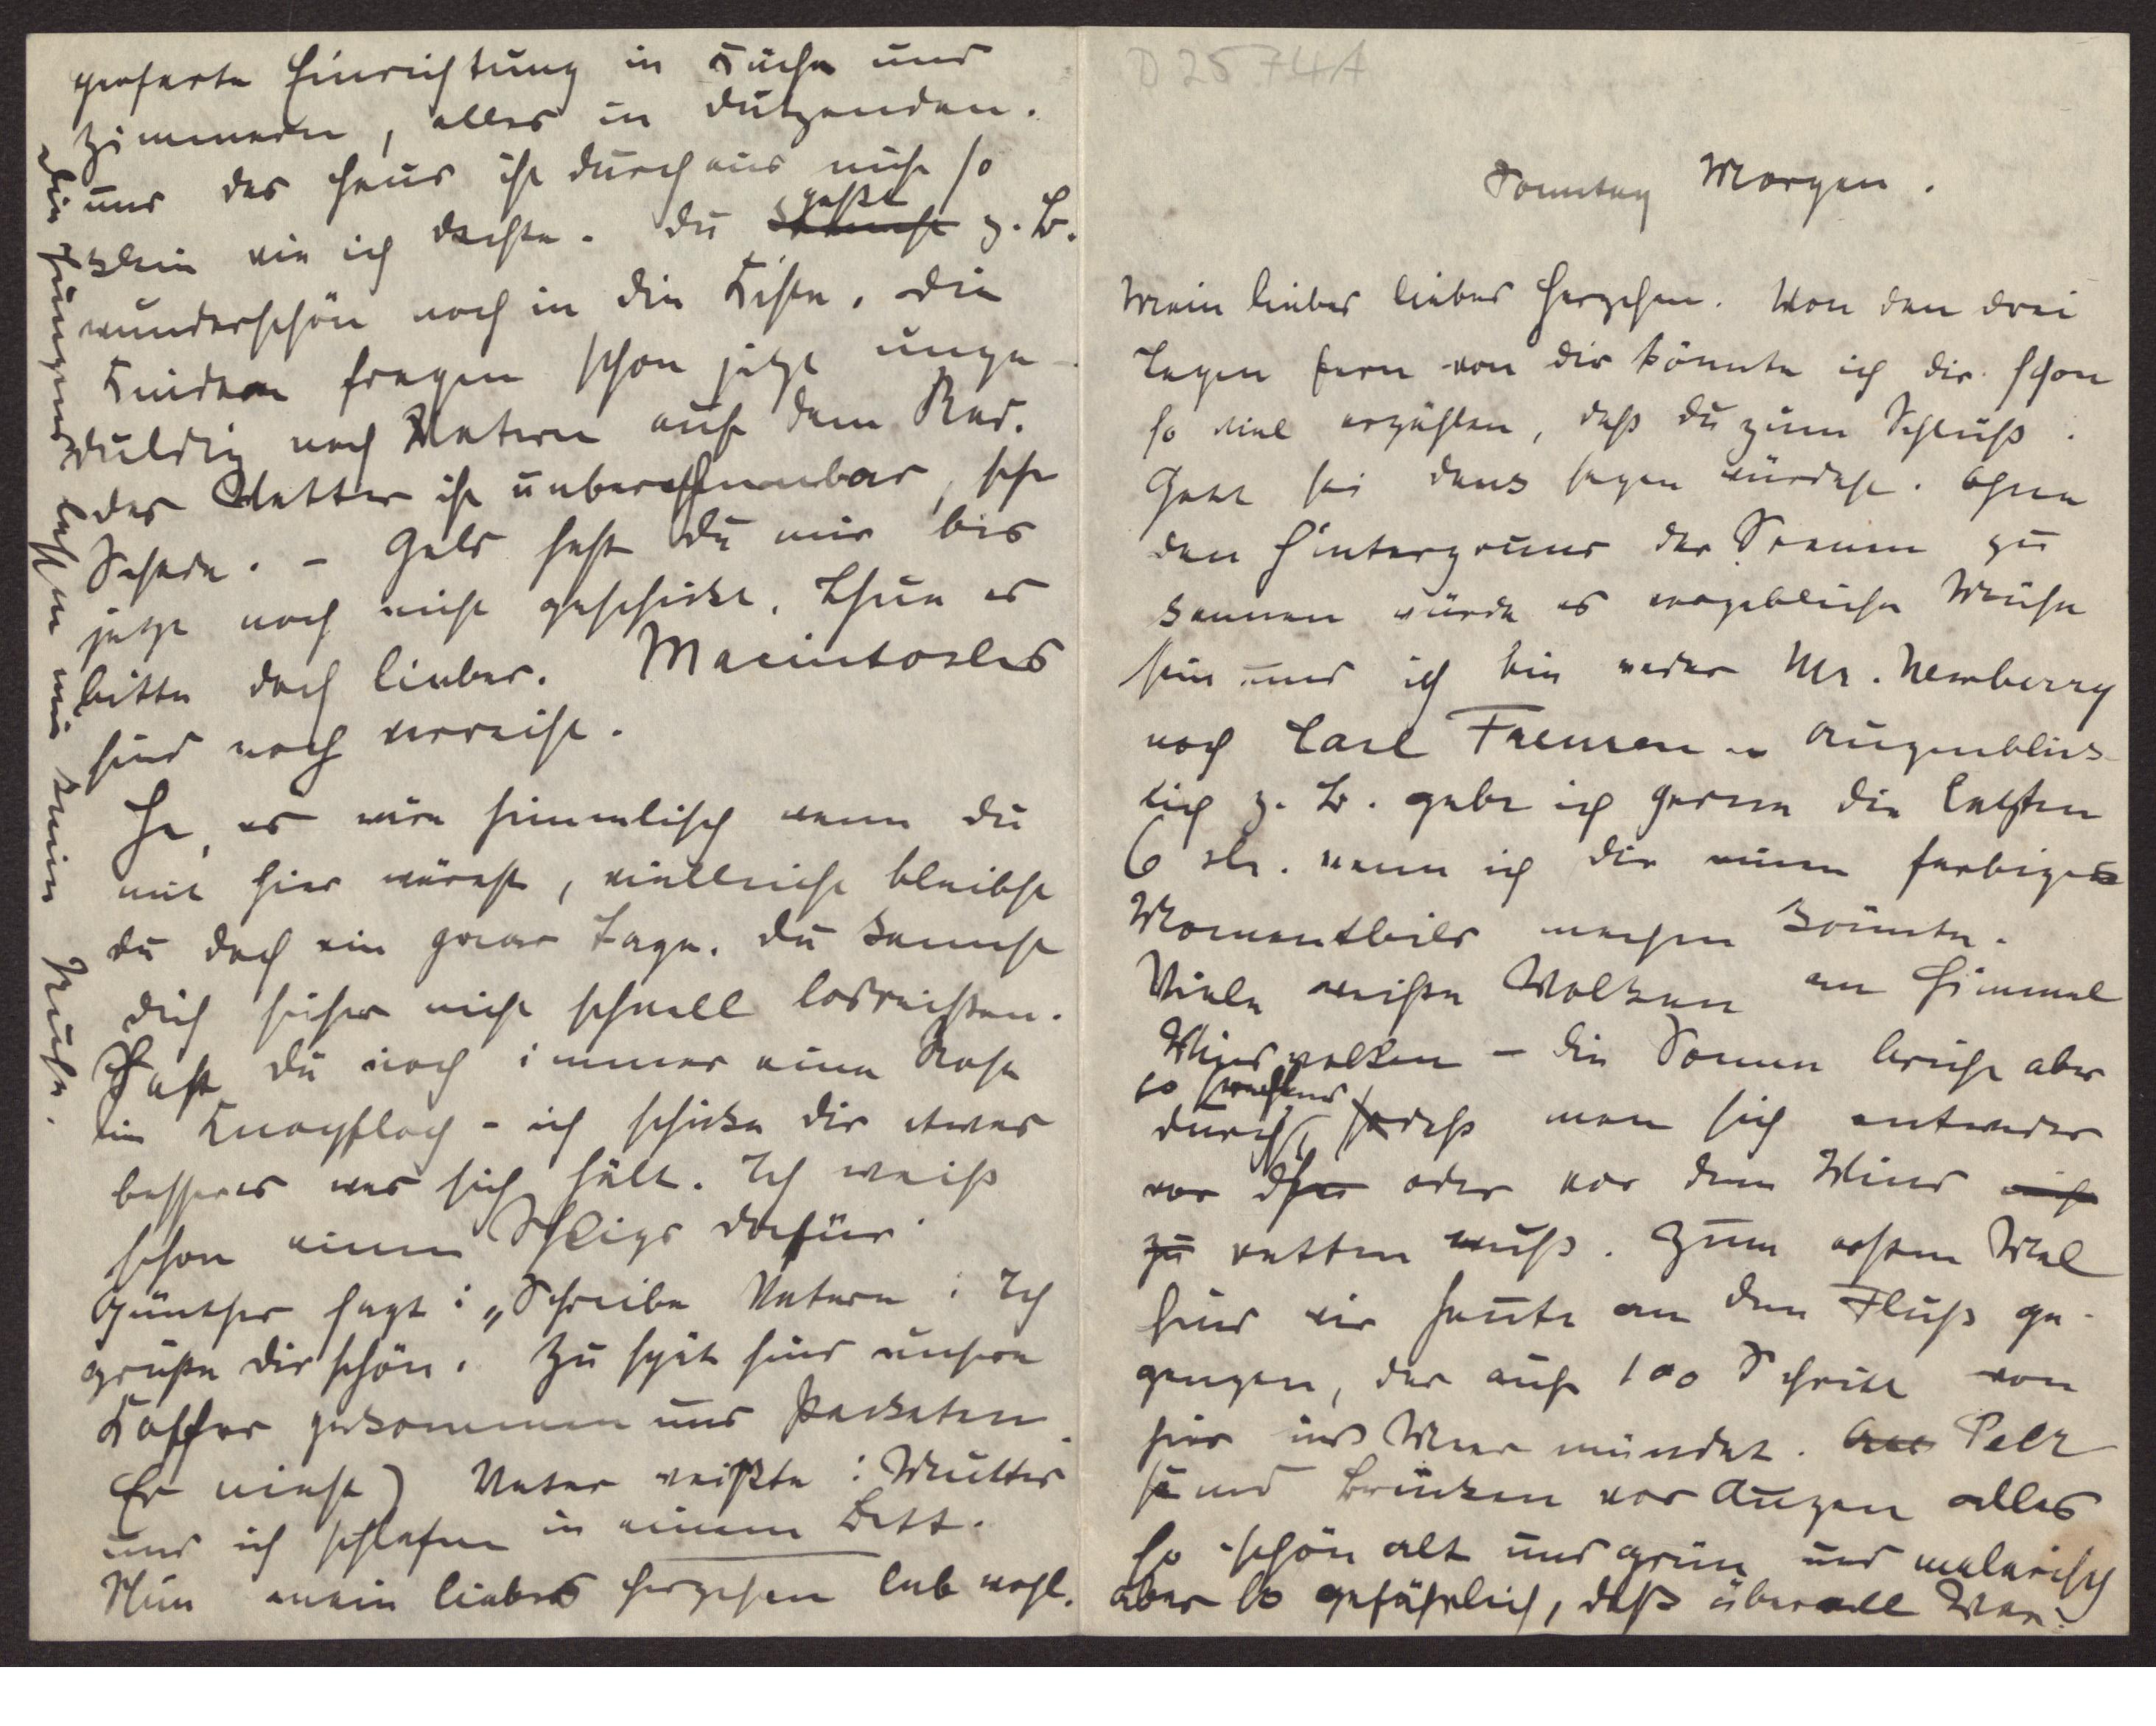 D 2574A
Sonntag Morgen.
Mein liebes liebes Herzchen. Von den drei
Tagen fern von dir könnte ich dir schon
so viel erzählen, daß du zum Schluß
Gott sei dank sagen würdest. Ohne
den Hintergrund der Scenen zu
kennen würde es vergebliche Mühe
sein und ich bin weder Mr. Newberry
noch Carl augenblick-
lich z. B. gebe ich gerne die letzten
6 sh. wenn ich dir einen farbiges
Momentbild machen könnte.
Viele weiße Wolken am Himmel
Windwolken – die Sonne bricht aber
so stechend
durch, daß man sich entweder
vor ihr oder vor dem Wind nicht
zu retten muß. Zum ersten Mal
sind wir heute an den Fluß ge-
gangen, der auf 100 Schritt von
hier ins Meer mündet.
und Brücken vor Augen alles
so schön alt und grün und malerisch
aber so gefährlich, daß überall War-
großarte Einrichtung in Küche und
Zimmern, alles in Dutzenden.
und das Haus ist durchaus nicht so
klein wie ich dachte. Du gehst z. B.
wunderschön noch in die Kiste. Die
Kinder fragen schon jetzt unge-
duldig nach Vatern auf dem Rad.
das Wetter ist unberechenbar, sehr
Schade. – Geld hast du mir bis
jetzt noch nicht geschickt. Thue es
bitte doch lieber. Macintoshs
sind noch verreist.
Ja, es wäre himmlisch wenn du
mit hier wärest, vielleicht bleibst
du doch ein paar Tage. Du kannst
dich sicher nicht schnell losreißen.
Hast du noch immer eine Rose
im Knopfloch – ich schicke dir etwas
besseres was sich hält. Ich weiß
schon einen dafür
Günther sagt: „Schreibe Vatern: Ich
grüße dir schön. Zu spät sind unsere
Koffer gekommen und Packeten.
Er niest) Vater weißte: Mutter
und ich schlafen in einem Bett.
Nun mein liebes Herzchen leb wohl.
Die Jungens lassen mir keine Ruhe.